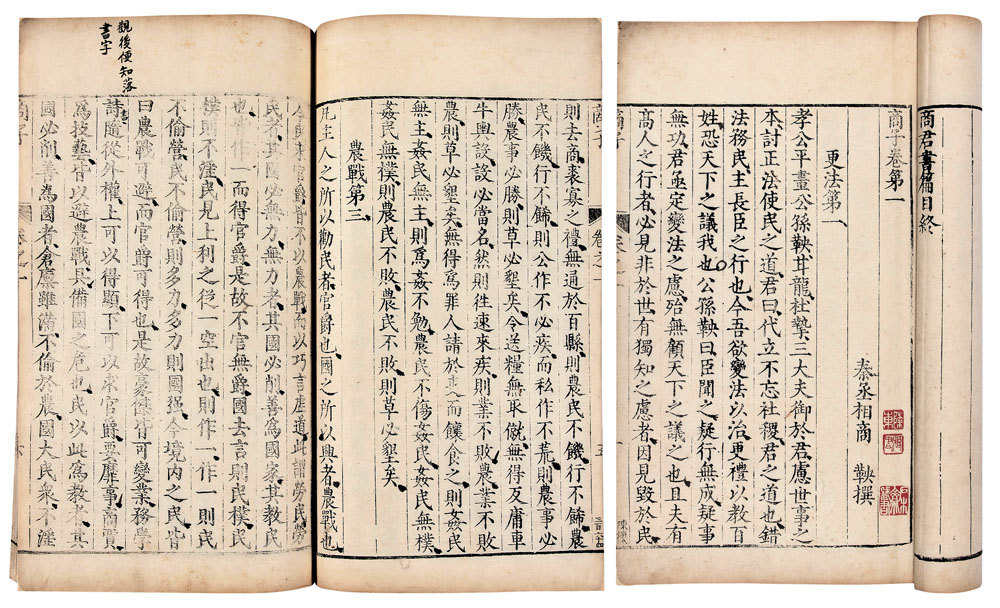 商君書篇目終
商子卷第一
秦丞相商鞅撰
更法第一
孝公平畫公孫鞅甘龍杜摯三大夫御於君慮世事之
本討正法使民之道君曰代立不忘社稷君之道也錯
法務民主長臣之行也今吾欲變法以治更禮以教百
姓恐天下之議我也公孫鞅曰臣聞之疑行無成疑事
無功君亟定變法之慮殆無顧天下之議之也且夫有
高人之行者必見非於世有獨知之慮者因見毀於民
商子
卷之一
五
則去商裹寡之禮無通於百縣則農民不饑行不餙農
民不饑行不餙則公作不必疾而私作不荒則農事必
勝農事必勝則草必墾矣令送糧無取僦無得反庸車
牛輿設設必當名然則徃速來疾則業不敗農業不敗
農則草必墾矣無得爲罪人請於吏而饟食之則姦民
無主姦民無主則爲姦不勉農民不傷姦民姦民無樸
姦民無樸則農民不敗農民不敗則草必墾矣
農戰第三
凡主人之所以勸民者官爵也國之所以興者農戰也
民求官爵皆不以農戰而以巧言虛道此謂勞民勞
民者其國必無力無力者其國必削善爲國家其教民
也一而得官爵是故不官無爵國去言則民樸民
樸則不淫民見上利之從一空出也則作一作一則民
不偷營民不偷營則多力多力則國强今境內之民皆
曰農戰可避而官爵可得也是故豪傑皆可變業務學
詩書隨從外權上可以得顯下可以求官爵要靡事商賈
爲技藝皆以避農戰具備國之危也民以此爲教者其
國必削善爲國者倉廩雖滿不偷於農國大民衆不淫
觀後便知落
書字